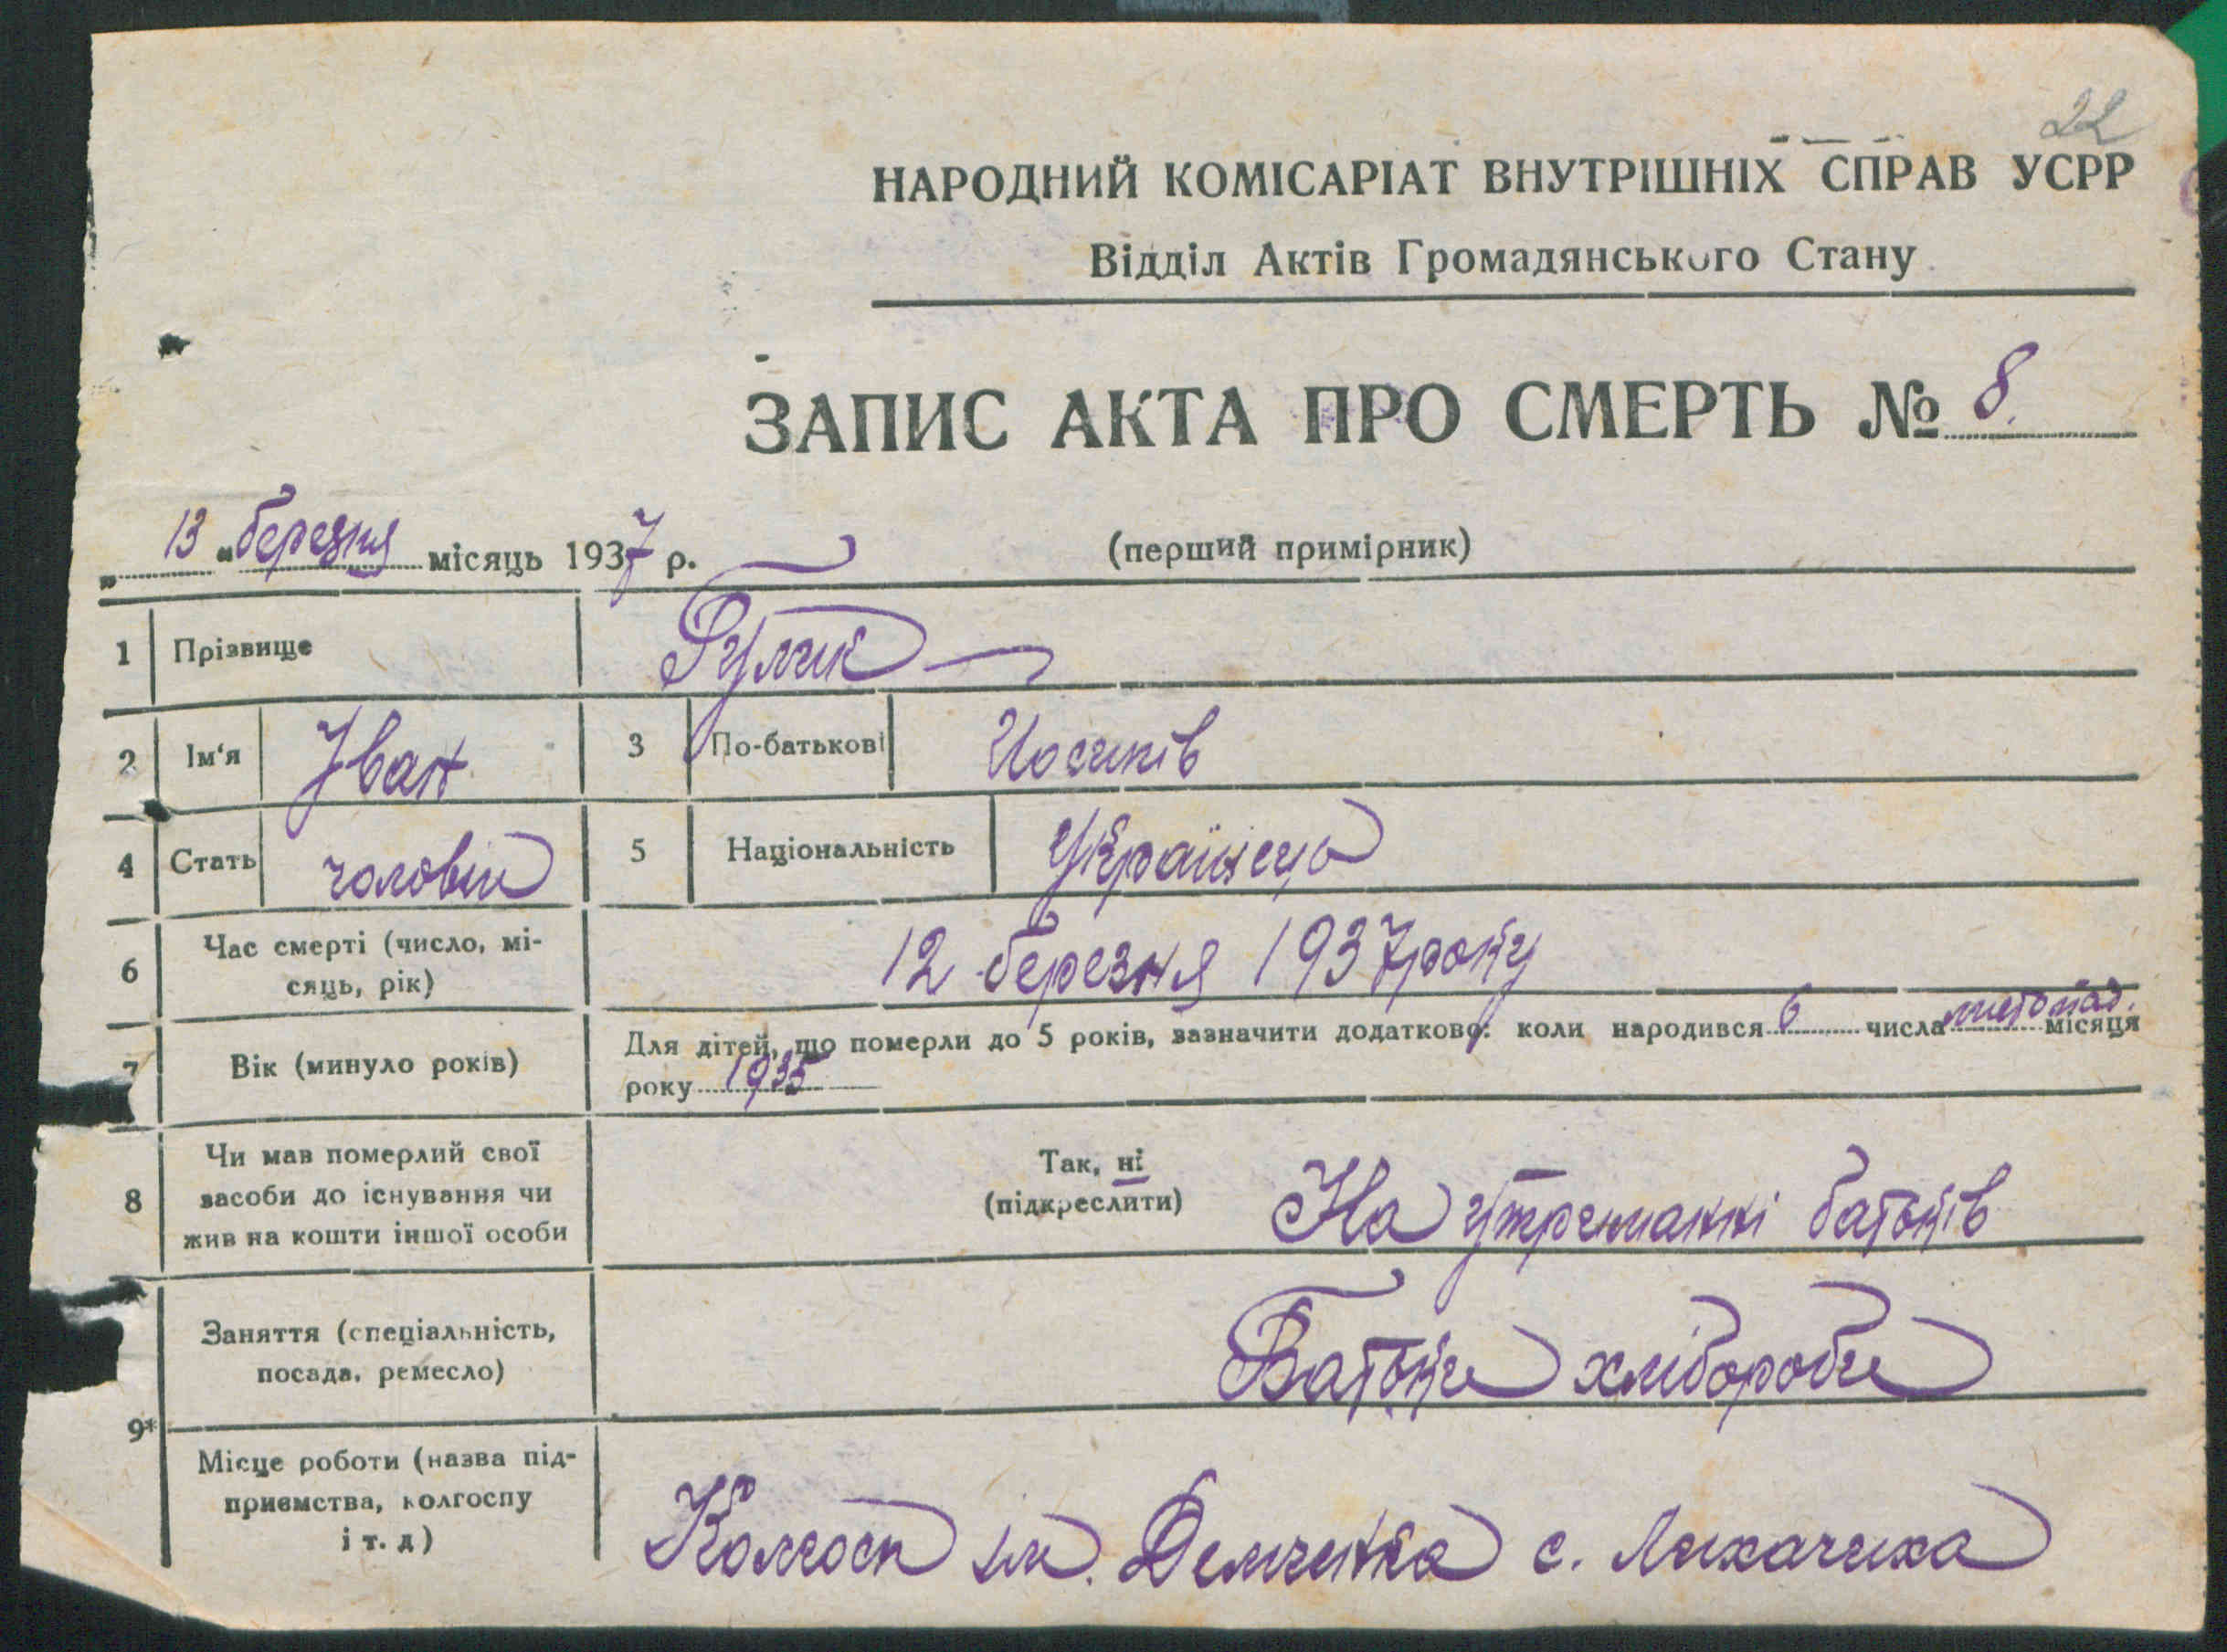 22
НАРОДНИЙ КОМІСАРІАТ ВНУТРІШНІХ СПРАВ УСРР
Відділ Актів Громадянського Стану
ЗАПИС АКТА ПРО СМЕРТЬ № 8.
„13“ березня місяць 1937 р. (перший примірник)
1 Прізвище Гулик
2 Ім'я Іван 3 По-батькові Йосипів
4 Стать чоловік 5 Національність Українець
6 Час смерті (число, мі-
сяць, рік) 12 березня 1937 року
7 Вік (минуло років) Для дітей, що померли до 5 років, зазначити додатково: коли народився 6 числа листопад. місяця
року 1935
8 Чи мав померлий свої
засоби до існування чи
жив на кошти іншої особи
Так, ні
(підкреслити) На утриманні батьків
9*
Заняття (спеціальність,
посада, ремесло) Батьки хлібороби
Місце роботи (назва під-
приємства, колгоспу
і т. д) Колгосп ім. Демченка с. Лихачиха